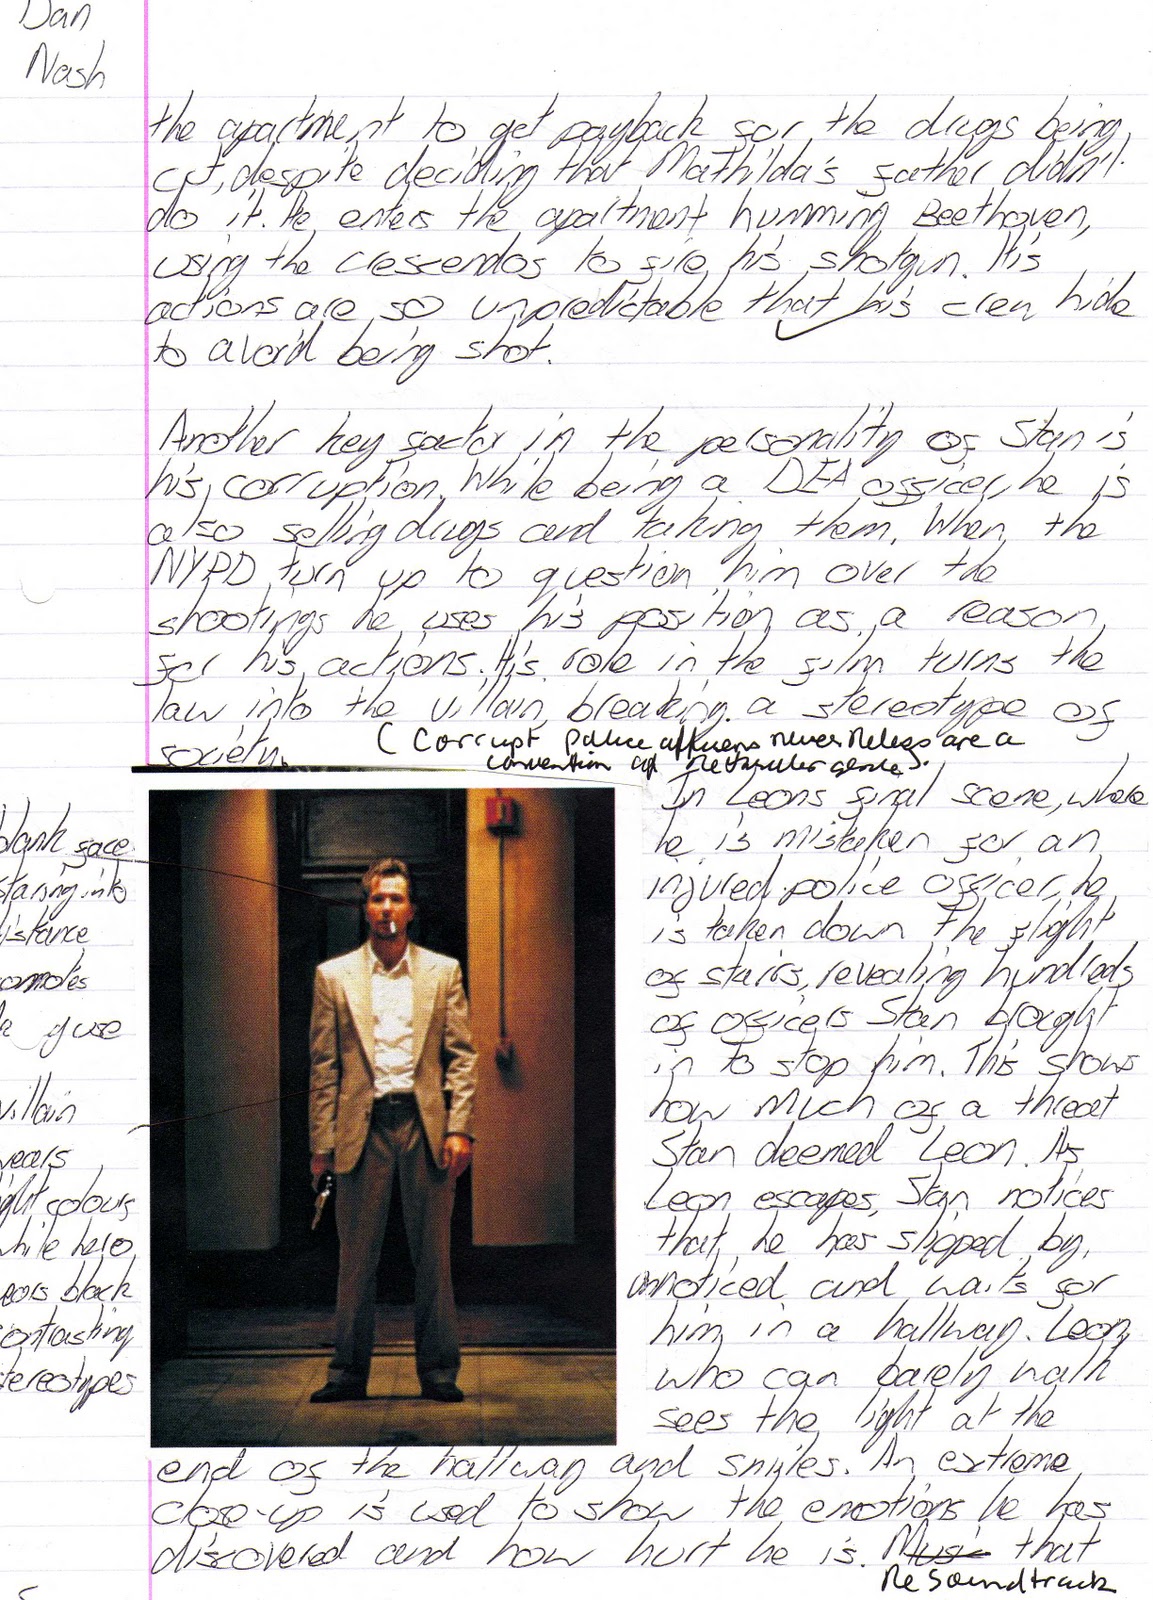 Dan
Nash
the apartment to get payback for the drugs being
cut, despite deciding that Mathilda's father didn't
do it. He enters the apartment humming Beethoven,
using the crescendos to fire his shotgun. His
actions are so unpredictable that his crew hide
to avoid being shot.
Another key factor in the personality of Stan is
his corruption. While being a DEA officer, he is
also selling drugs and taking them. When the
NYPD turn up to question him over the
shootings he uses his position as a reason
for his actions. His role in the film turns the
law into the villain, breaking a stereotype of
society.
(Corrupt police officers nevertheless are a
convention of the thriller genre).
blank face
staring into
distance
connotes
villain
wears
light colours
while hero
wears black
contrasting
stereotypes
In Leons final scene, where
he is mistaken for an
injured police officer, he
is taken down the flight
of stairs, revealing hundreds
of officers Stan brought
in to stop him. This shows
how much of a threat
Stan deemed Leon. As
Leon escapes, Stan notices
that he has slipped by,
unnoticed and waits for
him in a hallway. Leon,
who can barely walk
sees the light at the
end of the hallway and smiles. An extreme
close-up is used to show the emotions he has
discovered and how hurt he is. Music that
The Soundtrack